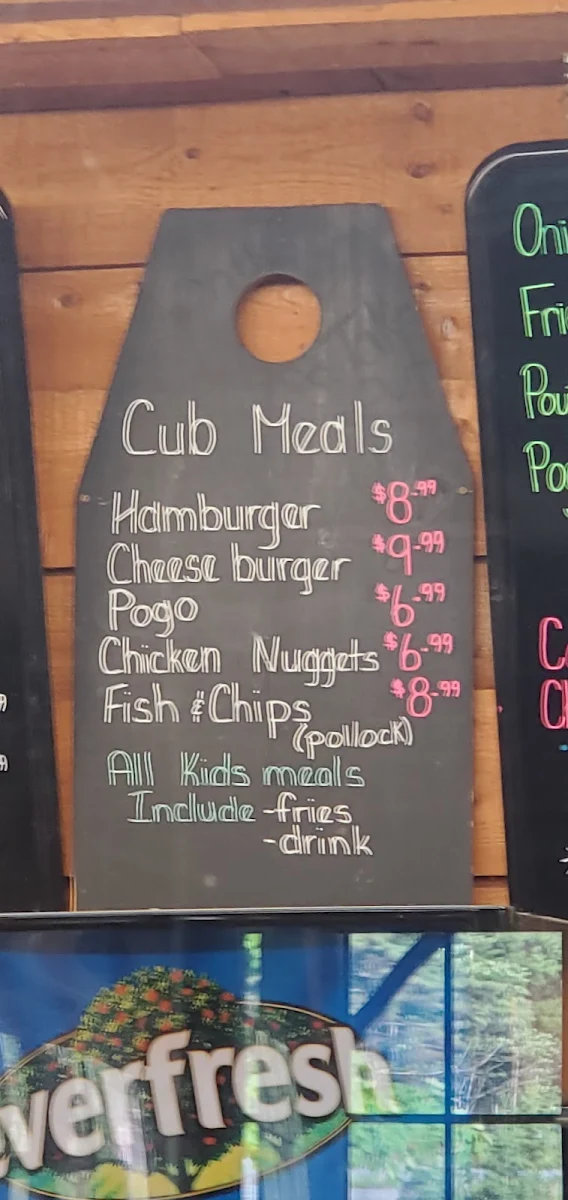 Cub Meals
Hamburger $8.99
Cheese burger $9.99
Pogo $6.99
Chicken Nuggets $6.99
Fish & Chips $8.99
(pollock)
All Kids meals
Include -fries
-drink
verfresh